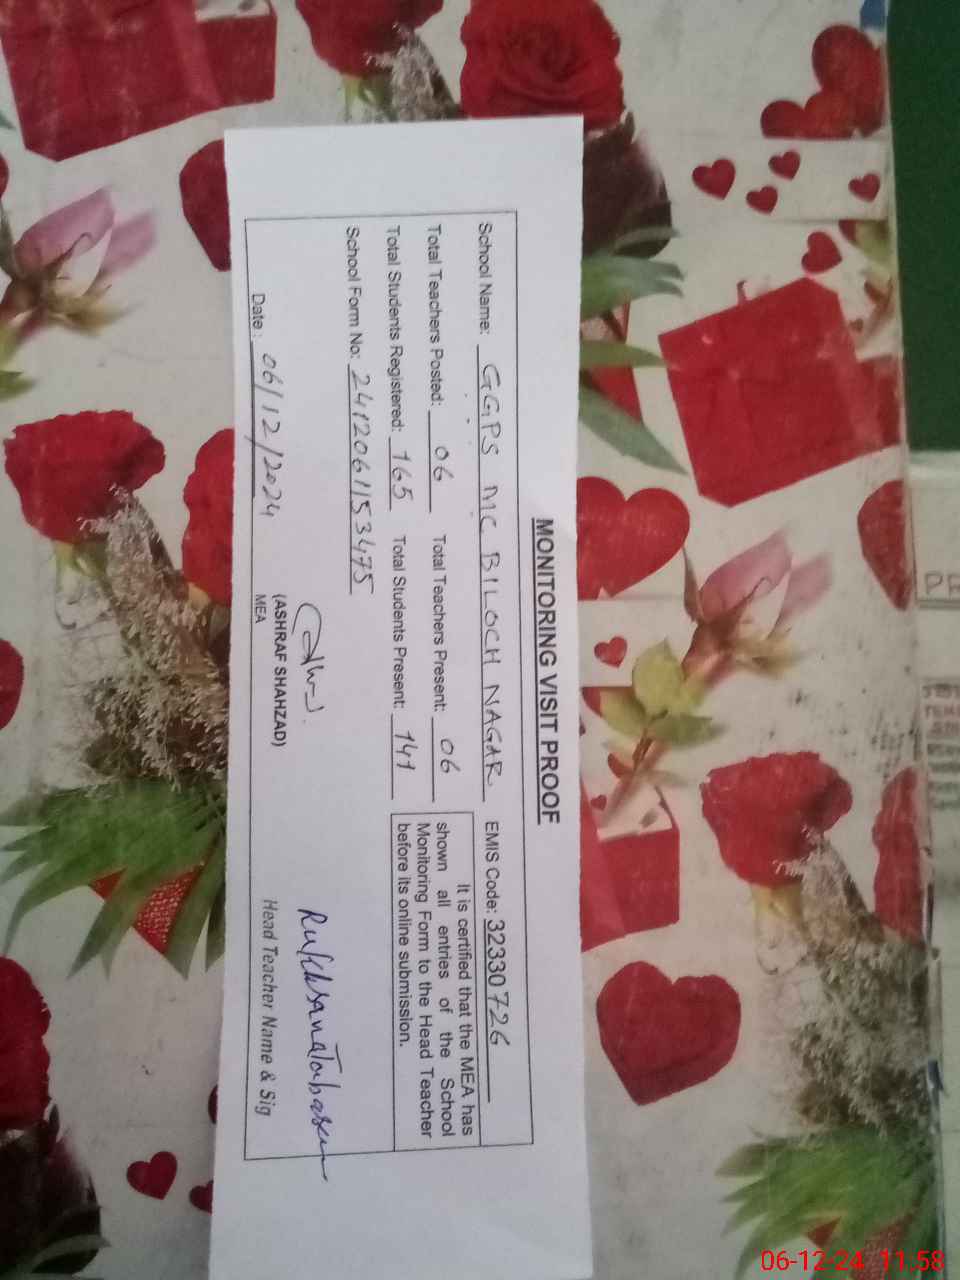 MONITORING VISIT PROOF
School Name: GGPS MC BILOCH NAGAR EMIS Code: 32330726
Total Teachers Posted: 06 Total Teachers Present: 06
Total Students Registered: 165 Total Students Present: 141
It is certified that the MEA has
shown all entries of the School
Monitoring Form to the Head Teacher
before its online submission.
School Form No: 2412061153475
Rukhsana Tabasum
Date: 06/12/2024 (ASHRAF SHAHZAD)
MEA
Head Teacher Name & Sig
06-12-24 11:58